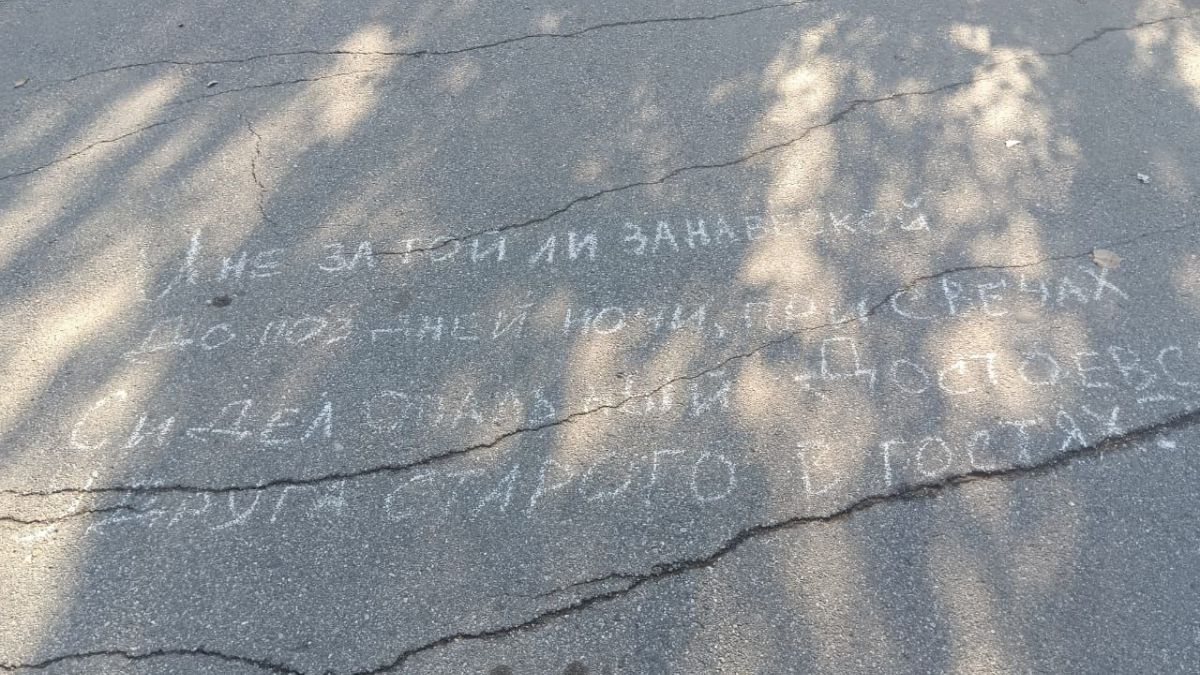 А не за той ли занавеской
До поздней ночи, при свечах
Сидел опальный Достоевс
Друга старого в гостях.